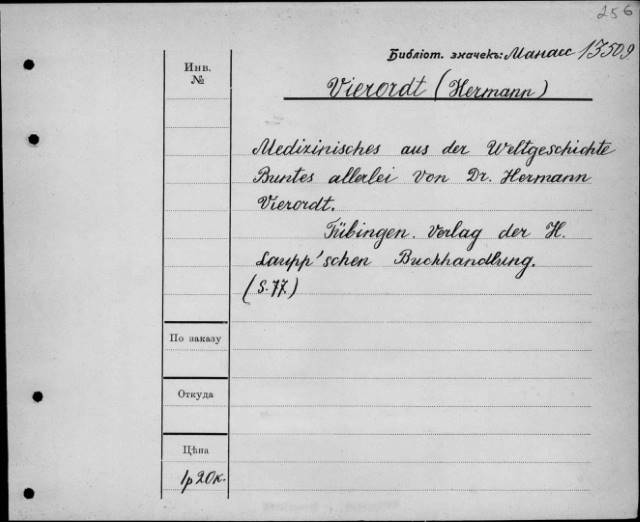 256
Библіот. значекъ: Манасс 13509
Инв.
№
Vierordt (Hermann)
Medizinisches aus der Weltgeschichte
Buntes allerlei von Dr. Hermann
Vierordt.
Tübingen. Verlag der H.
Laupp'schen Buchhandlung.
(S. 77.)
По заказу
Откуда
Цѣна
1р 20к.